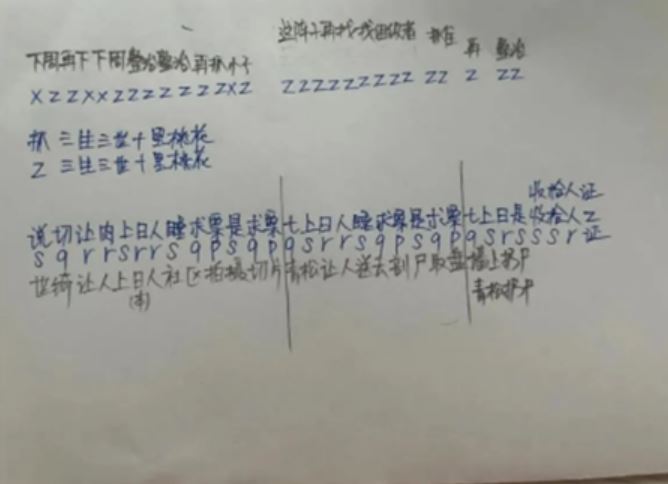 这阵子再找 找回饮者 抓在 再 整治
下周再下下周整治整治再抓小子
XZZXXZZZZZZZXZ ZZZZZZZZZ ZZ Z ZZ
抓三生三世十里桃花
Z三生三世十里桃花
收捡人证
说切让肉上日人睡求票是求票七上日人睡求票是求票七上日是收捡人Z
sqrrsrrsqpsqpqsrrsqpsqpqsrsssr证
世绮让人上日人社区拍摄切片青松让人送去割尸取盘
(本) 青松